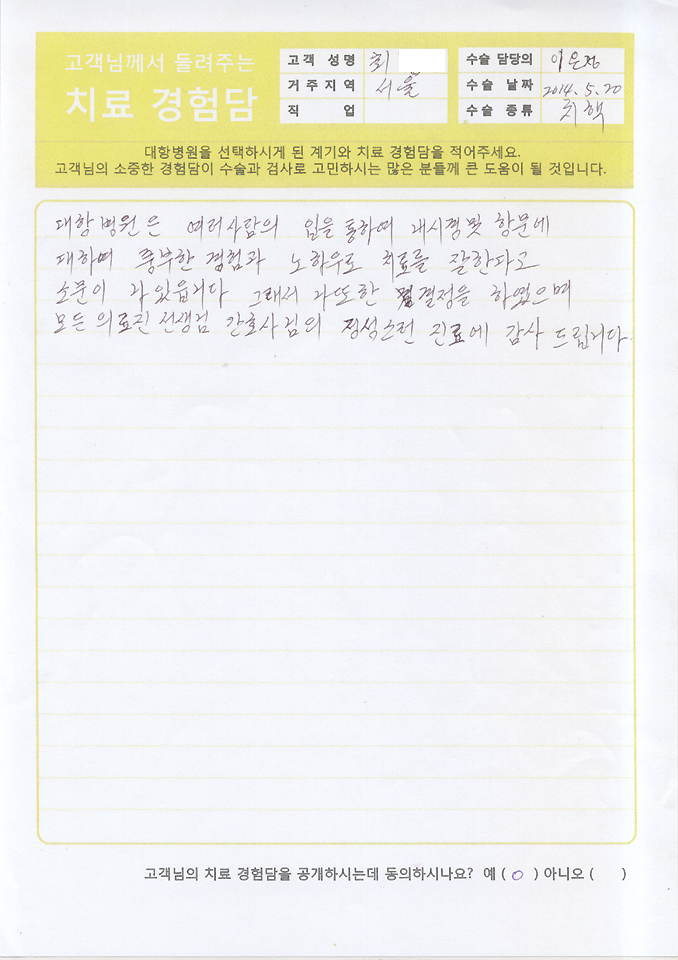 고객님께서 들려주는
치료 경험담
고객 성명 최
거주지역 서울
직 업
수술 담당의 이은정
수술 날짜 2014.5.20
수술 종류 치핵
대항병원을 선택하시게 된 계기와 치료 경험담을 적어주세요.
고객님의 소중한 경험담이 수술과 검사로 고민하시는 많은 분들께 큰 도움이 될 것입니다.
대항병원은 여러사람의 입을통하여 내시경및 항문에
대하여 풍부한 경험과 노하우로 치료를 잘한다고
소문이 나있읍니다 그래서 과또한 결정을 하였으며
모든 의료진선생님 간호사님의 정성스런 진료에 감사 드립니다.
고객님의 치료 경험담을 공개하시는데 동의하시나요? 예 ( O ) 아니오 ( )